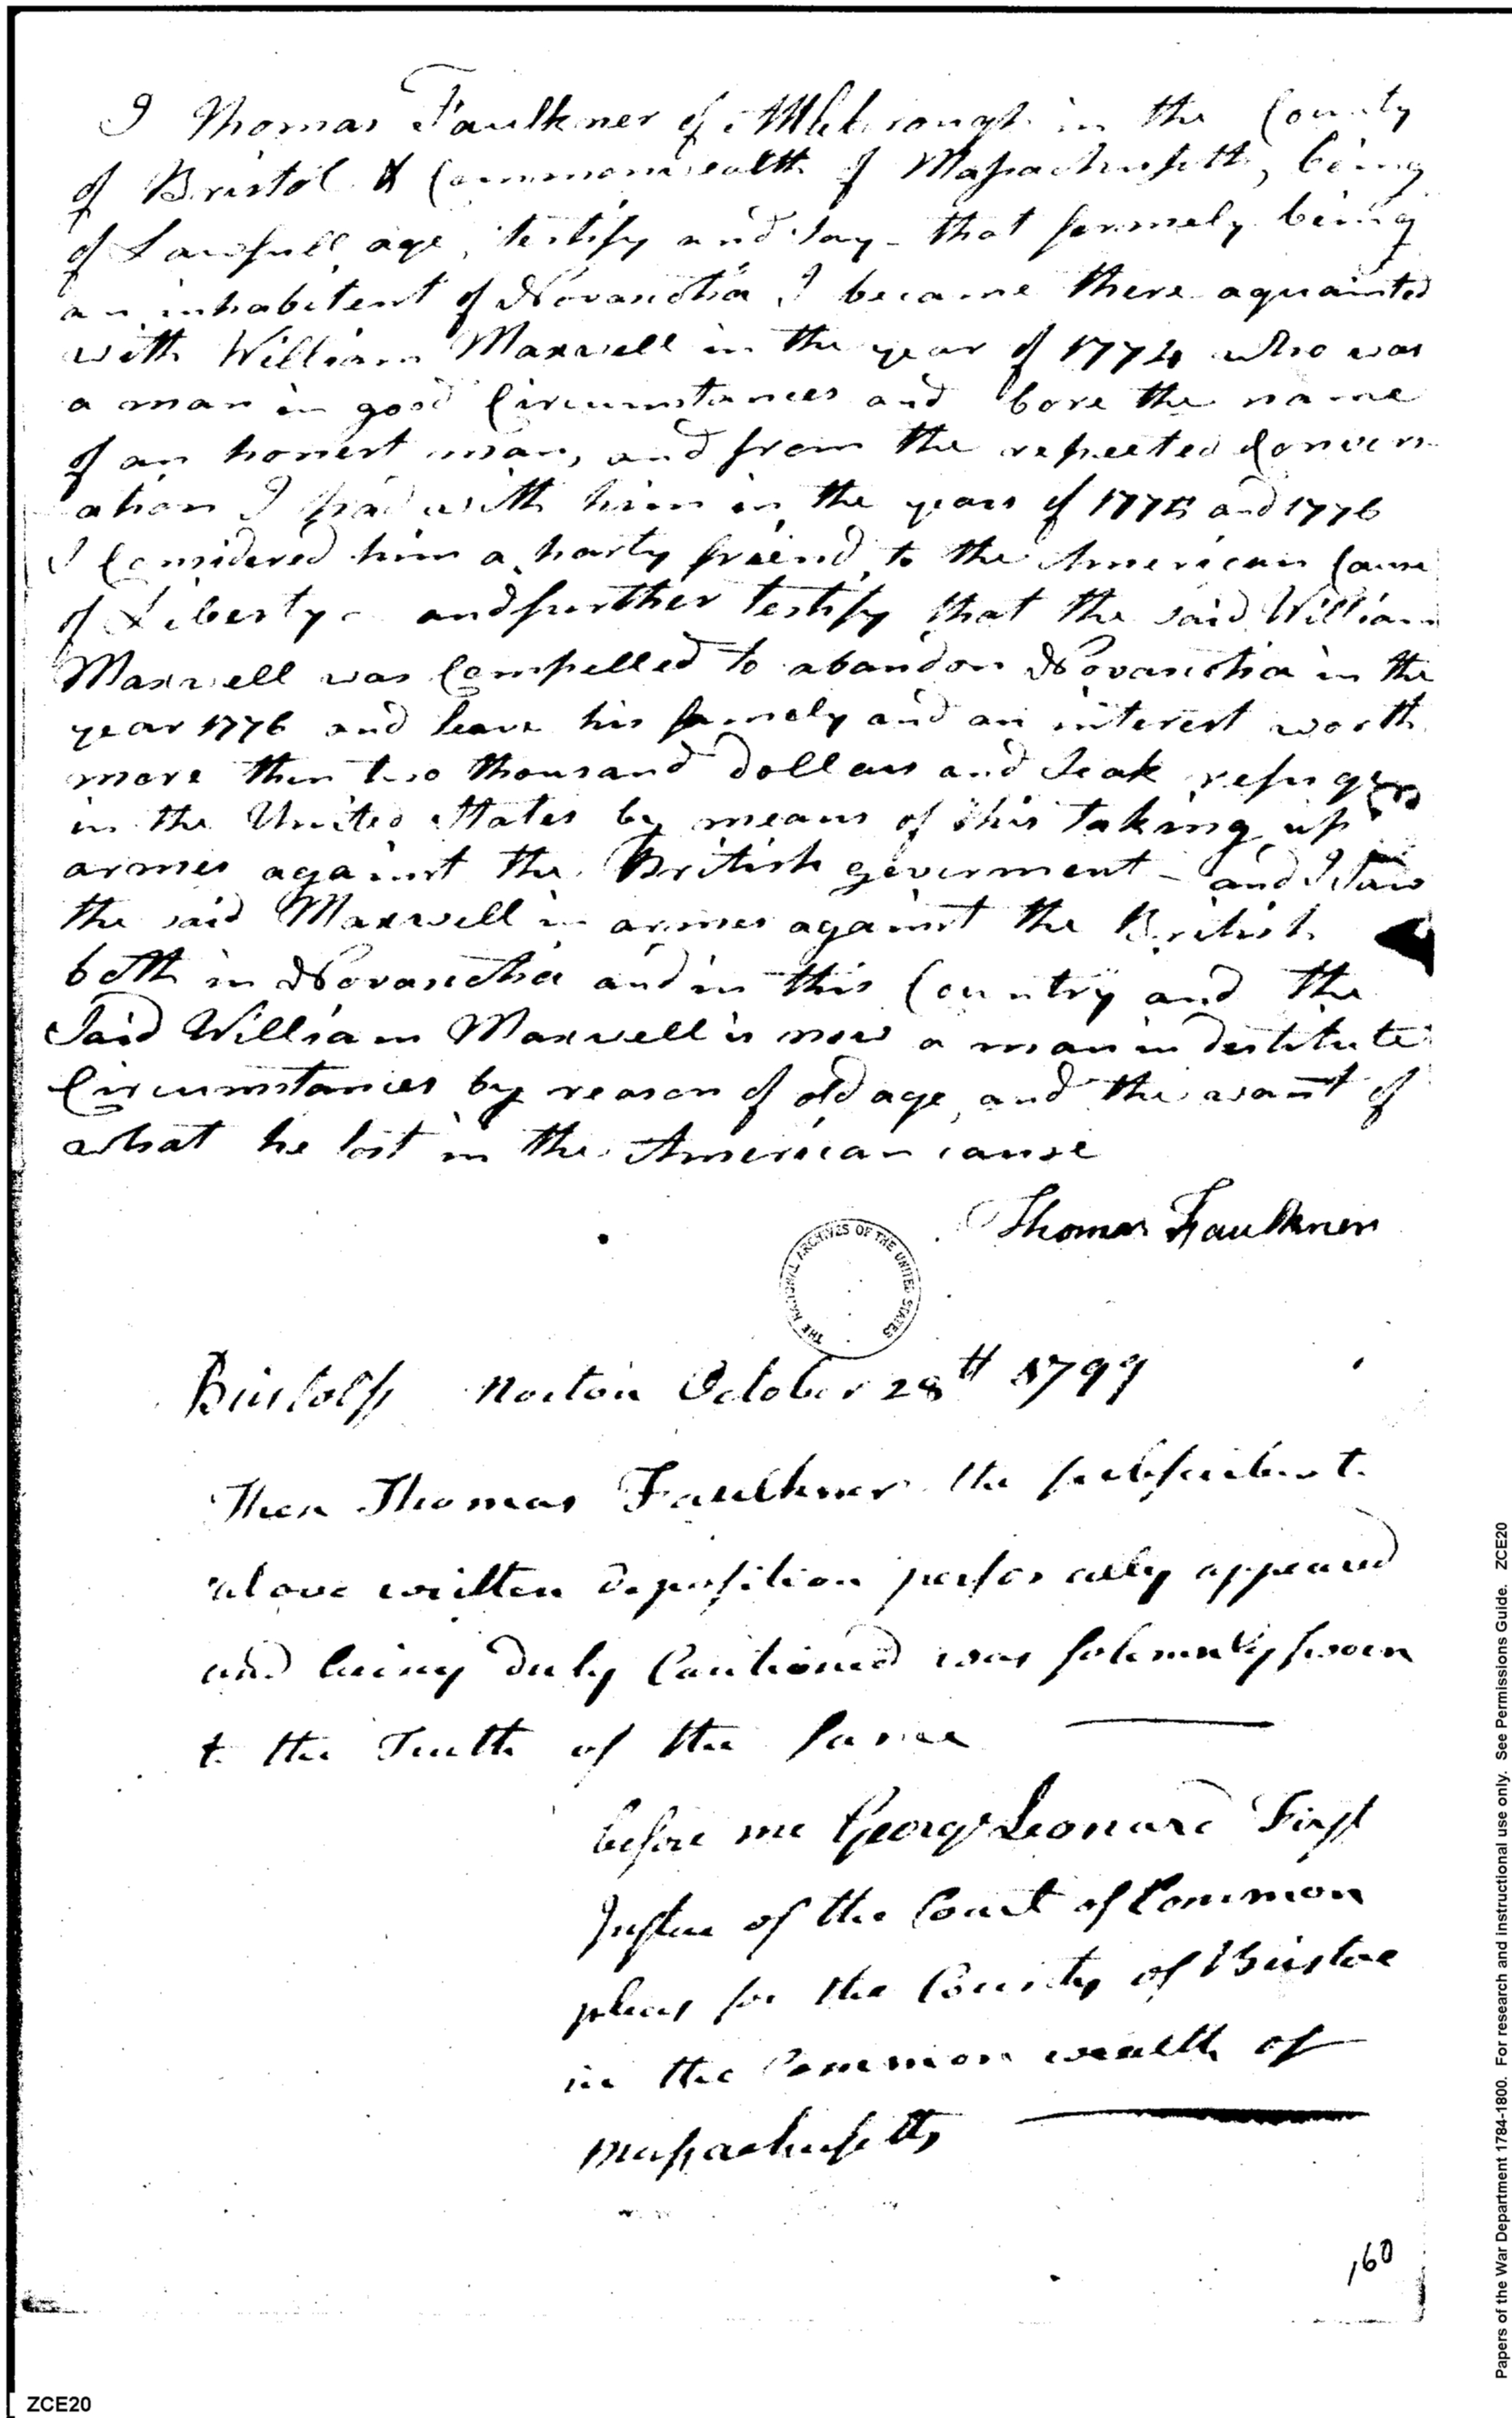 I Thomas Faulkner of Attleborough in the County
of Bristol & Commonwealth of Massachusetts, being
of Lawfull age, testify and say - that formely being
an inhabitent of Novascotia I became there aquainted
with William Maxwell in the year of 1774 who was
a man in good Circumstances and bore the name
of an honest man, and from the repeeted Convers
ation I had with him in the years of 1775 and 1776
I Considered him a harty friend to the American Cause
of Liberty - and further testify that the said William
Maxwell was Compelled to abandon Novascotia in the
year 1776 and leave his famely and an interest worth
more then two thousand dollars and Seak refuge
in the United States by means of his taking up
armes against the British goverment - and I saw
the said Maxwell in armes against the British
both in Novascotia and in this Country and the
Said William Maxwell is now a man in destitute
Circumstances by reason of old age, and the want of
what he lost in the American cause
Thomas Faulkner
THE NATIONAL ARCHIVES OF THE UNITED STATES
Bristol ss Norton October 28th 1799
Then Thomas Faulkner the subscriber t
above written deposition personally appeared
and being duly Cautioned was solemnly sworn
to the Truth of the same
before me George Leonard First
Justice of the Court of Common
pleas for the County of Bristol
in the Common wealth of
Massachusetts
160
ZCE20
Papers of the War Department 1784-1800. For research and instructional use only. See Permissions Guide. ZCE20